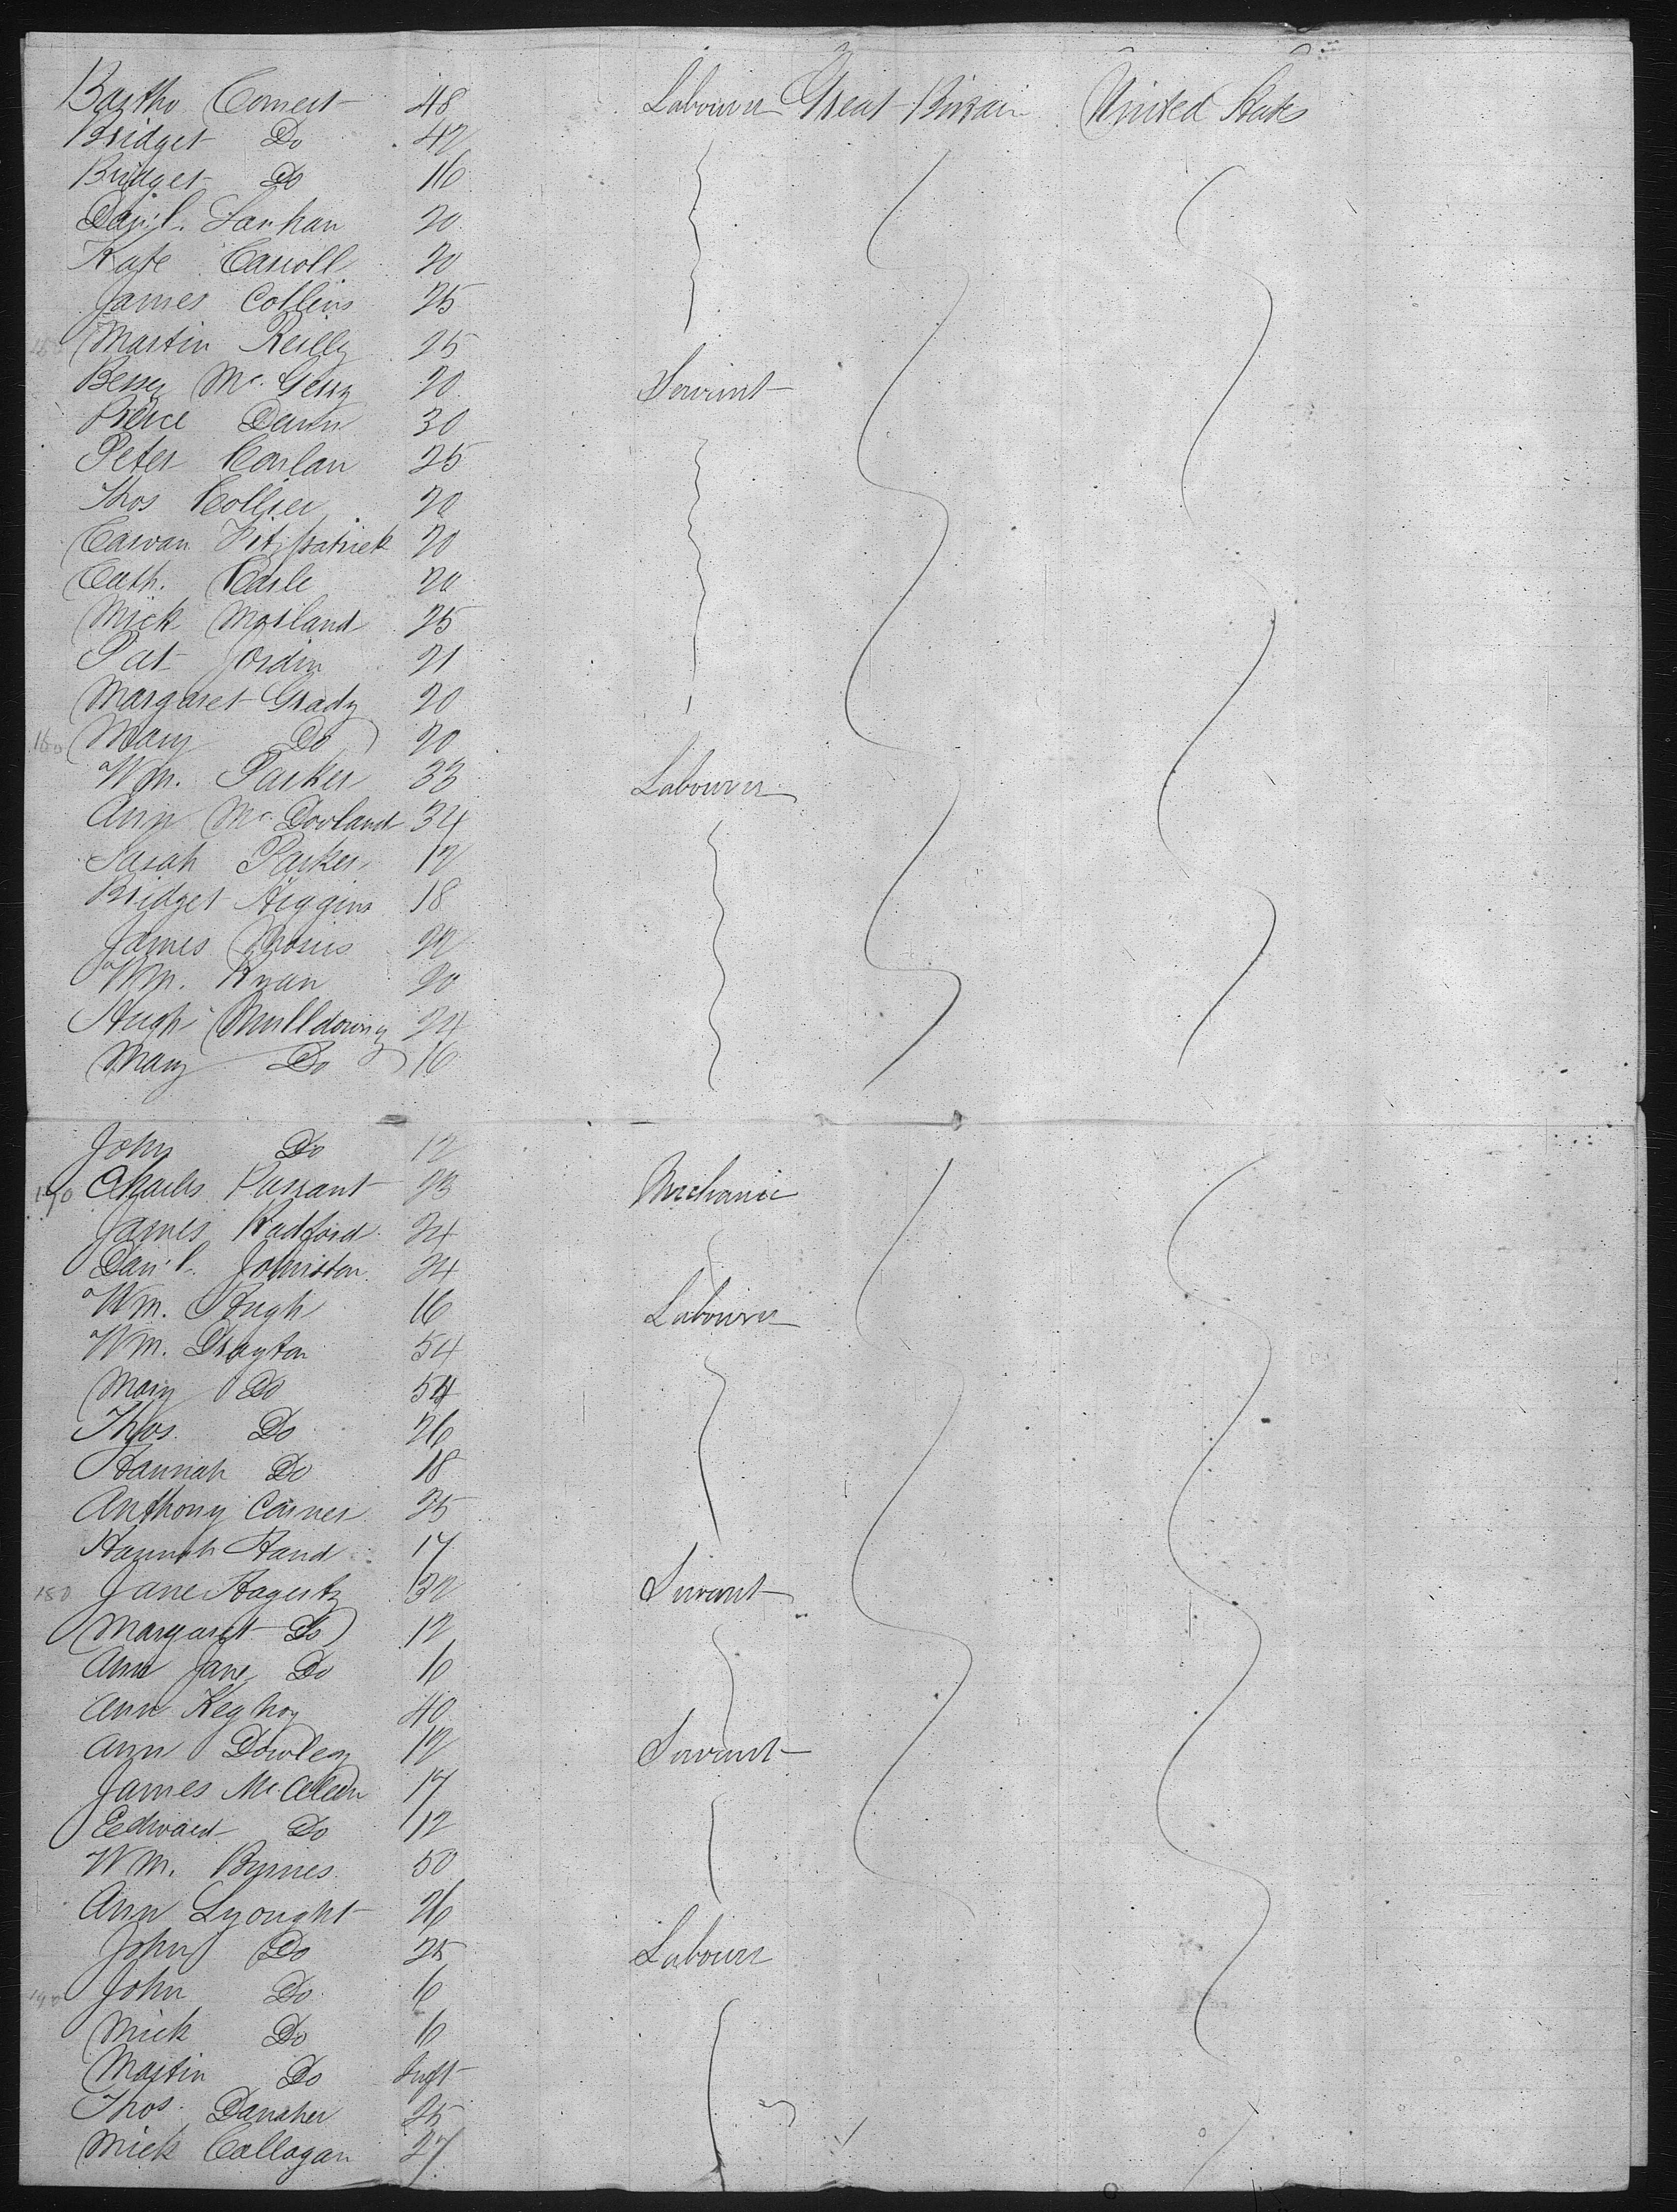 Bartho Comert 48 Labourer Great Britain United States
Bridget Do 42
Bridget Do 16
Dan'l. Lankan 20
Kate Carroll 20
James Collins 25
Martin Reilly 25
Bessy Mc. Gerry 20 Servant
Pierce Dunn 30
Peter Conlan 25
Thos Collier 20
Fitzpatrick 20
Cath. Earle 20
Mick Morland 25
Pat Jordin 21
Margaret Grady 20
160 Mary Do 20
Wm. Parker 33 Labourer
Ann Mc. Dowland 34
Sarah Parker 12
Bridget Higgins 18
James Moris 22
Wm. Ryan 20
Hugh Mulldowny 24
Mary Do 16
John Do 12
170 Charles Passant 23 Mechanic
James Radford 24
Dan'l. Johnston 24
Wm. Hugh 16 Labourer
Wm. Drayton 54
Mary Do 54
Thos. Do 26
Hannah Do 18
Anthony Carnes 25
Hannah Hand 17
180 Jane Hagerty 32 Servant
Margaret Do 12
Ann Jane Do 6
Ann Keghoy 40
Ann Dowley 12 Servant
James Mc. Aleen 17
Edward Do 12
Wm. Byrnes 50
Ann Lyought 26
John Do 25 Labourer
190 John Do 6
Mick Do 6
Martin Do Inft
Thos. Danaher 25
Mick Callogan 27